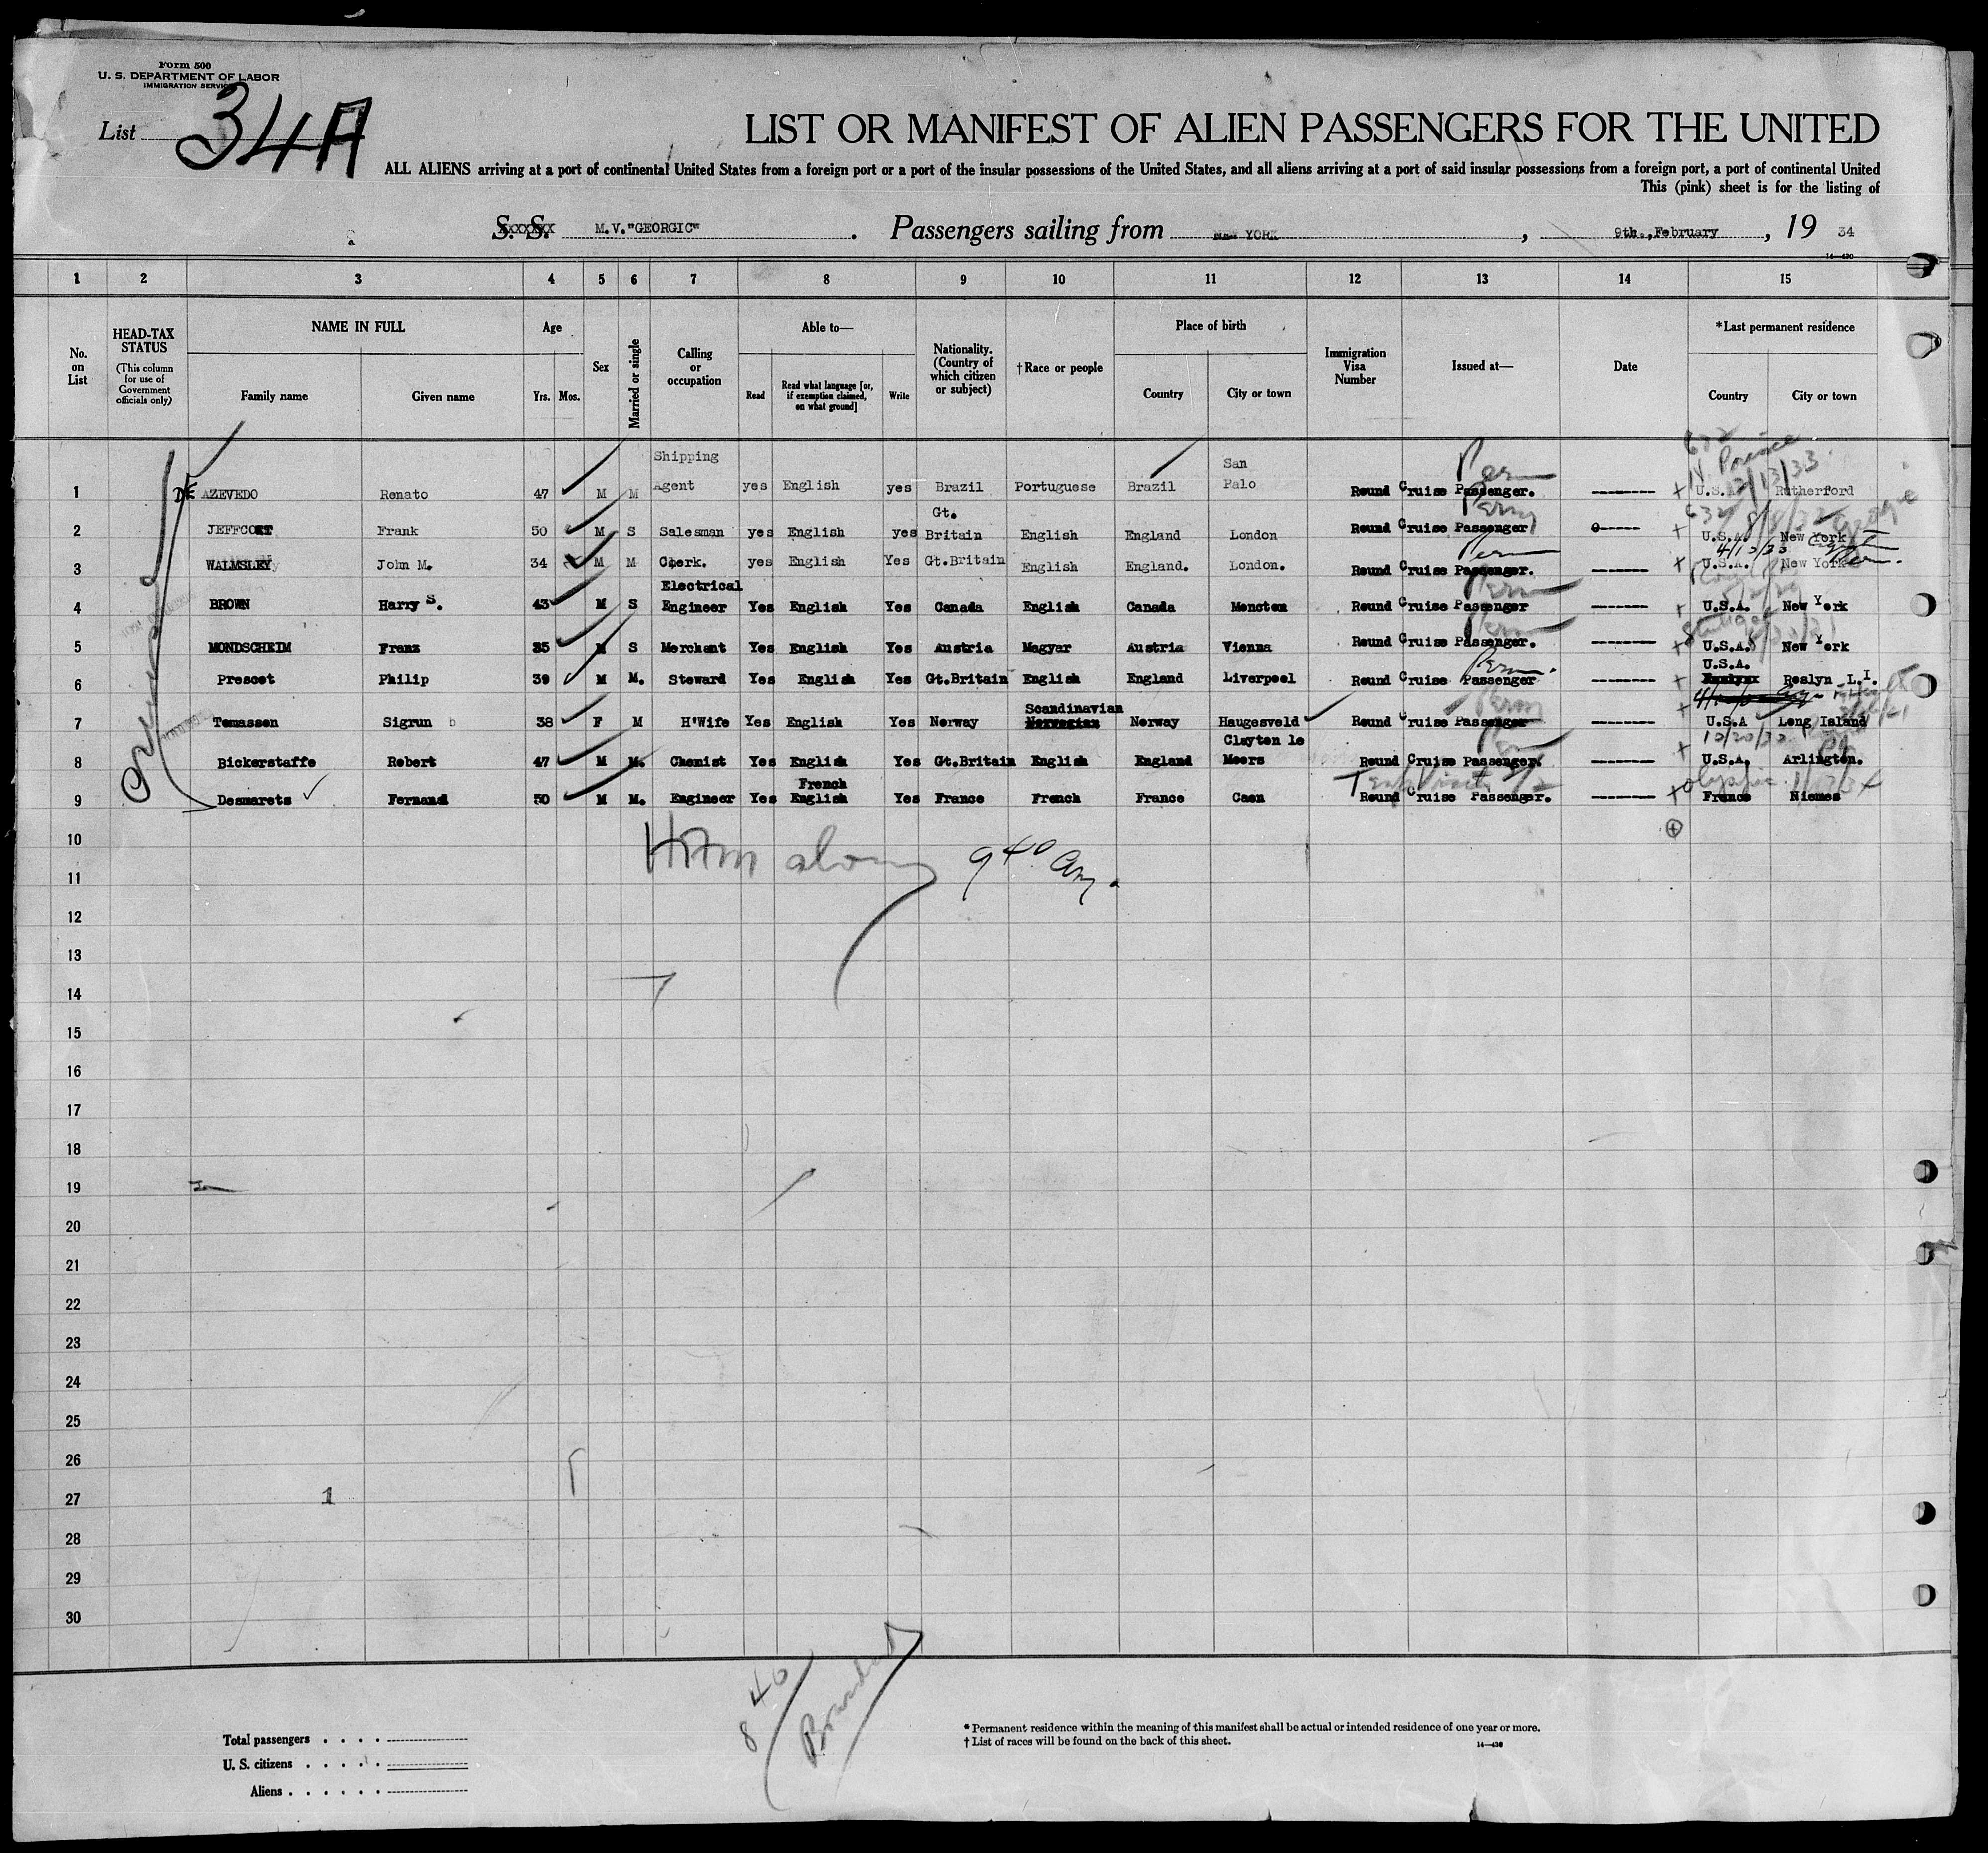 Form 500
U. S. DEPARTMENT OF LABOR
IMMIGRATION SERVICE
List 34A
LIST OR MANIFEST OF ALIEN PASSENGERS FOR THE UNITED
ALL ALIENS arriving at a port of continental United States from a foreign port or a port of the insular possessions of the United States, and all aliens arriving at a port of said insular possessions from a foreign port, a port of continental United
This (pink) sheet is for the listing of
S. S. M.V."GEORGIC". Passengers sailing from New YORK, 9th.,February, 19 34
14—430
1 2 3 4 5 6 7 8 9 10 11 12 13 14 15
No. on List
HEAD-TAX STATUS
(This column for use of Government officials only)
NAME IN FULL
Family name Given name
Age
Yrs. Mos.
Sex
Married or single
Calling or occupation
Able to—
Read Read what language [or, if exemption claimed, on what ground] Write
Nationality. (Country of which citizen or subject)
†Race or people
Place of birth
Country City or town
Immigration Visa Number
Issued at—
Date
*Last permanent residence
Country City or town
632
N. Prince
12/13/33
Perm
1 AZEVEDO Renato 47 M M Shipping Agent yes English yes Brazil Portuguese Brazil San Palo Round Cruise Passenger. -------- U.S.A. Rutherford
632
Georgic
Perm
2 JEFFCOTT Frank 50 M S Salesman yes English yes Gt. Britain English England London Round Cruise Passenger ----- U.S.A. New York
Perm
3 WALMSLEY John M. 34 M M Clerk. yes English Yes Gt.Britain English England. London. Round Cruise Passenger. ------- U.S.A. New York
Perm
4 BROWN Harry S. 43 M S Electrical Engineer Yes English Yes Canada English Canada Moncton Round Cruise Passenger ------- U.S.A. New York
Perm
5 MONDSCHEIM Franz 35 M S Merchant Yes English Yes Austria Magyar Austria Vienna Round Cruise Passenger. -------- U.S.A. New York
Perm.
6 Prescot Philip 39 M M. Steward Yes English Yes Gt.Britain English England Liverpool Round Cruise Passenger -------- U.S.A. Roslyn L.I.
Perm
7 Tomassen Sigrun b 38 F M H'Wife Yes English Yes Norway Scandinavian Norway Haugesveld Round Cruise Passenger -------- U.S.A Long Island
10/20/33
8 Bickerstaffe Robert 47 M M. Chemist Yes English Yes Gt.Britain English England Clayton le Moors Round Cruise Passenger. -------- U.S.A. Arlington.
Olympic
9 Desmarets Fernand 50 M M. Engineer Yes French English Yes France French France Caen Round Cruise Passenger. -------- France Niemes
10
9 40 am.
11
12
13
14
15
16
17
18
19
20
21
22
23
24
25
26
27 1
28
29
30
8 40
Boarded
Total passengers . . . .
U. S. citizens . . . . .
Aliens . . . . . .
* Permanent residence within the meaning of this manifest shall be actual or intended residence of one year or more.
† List of races will be found on the back of this sheet.
14—430